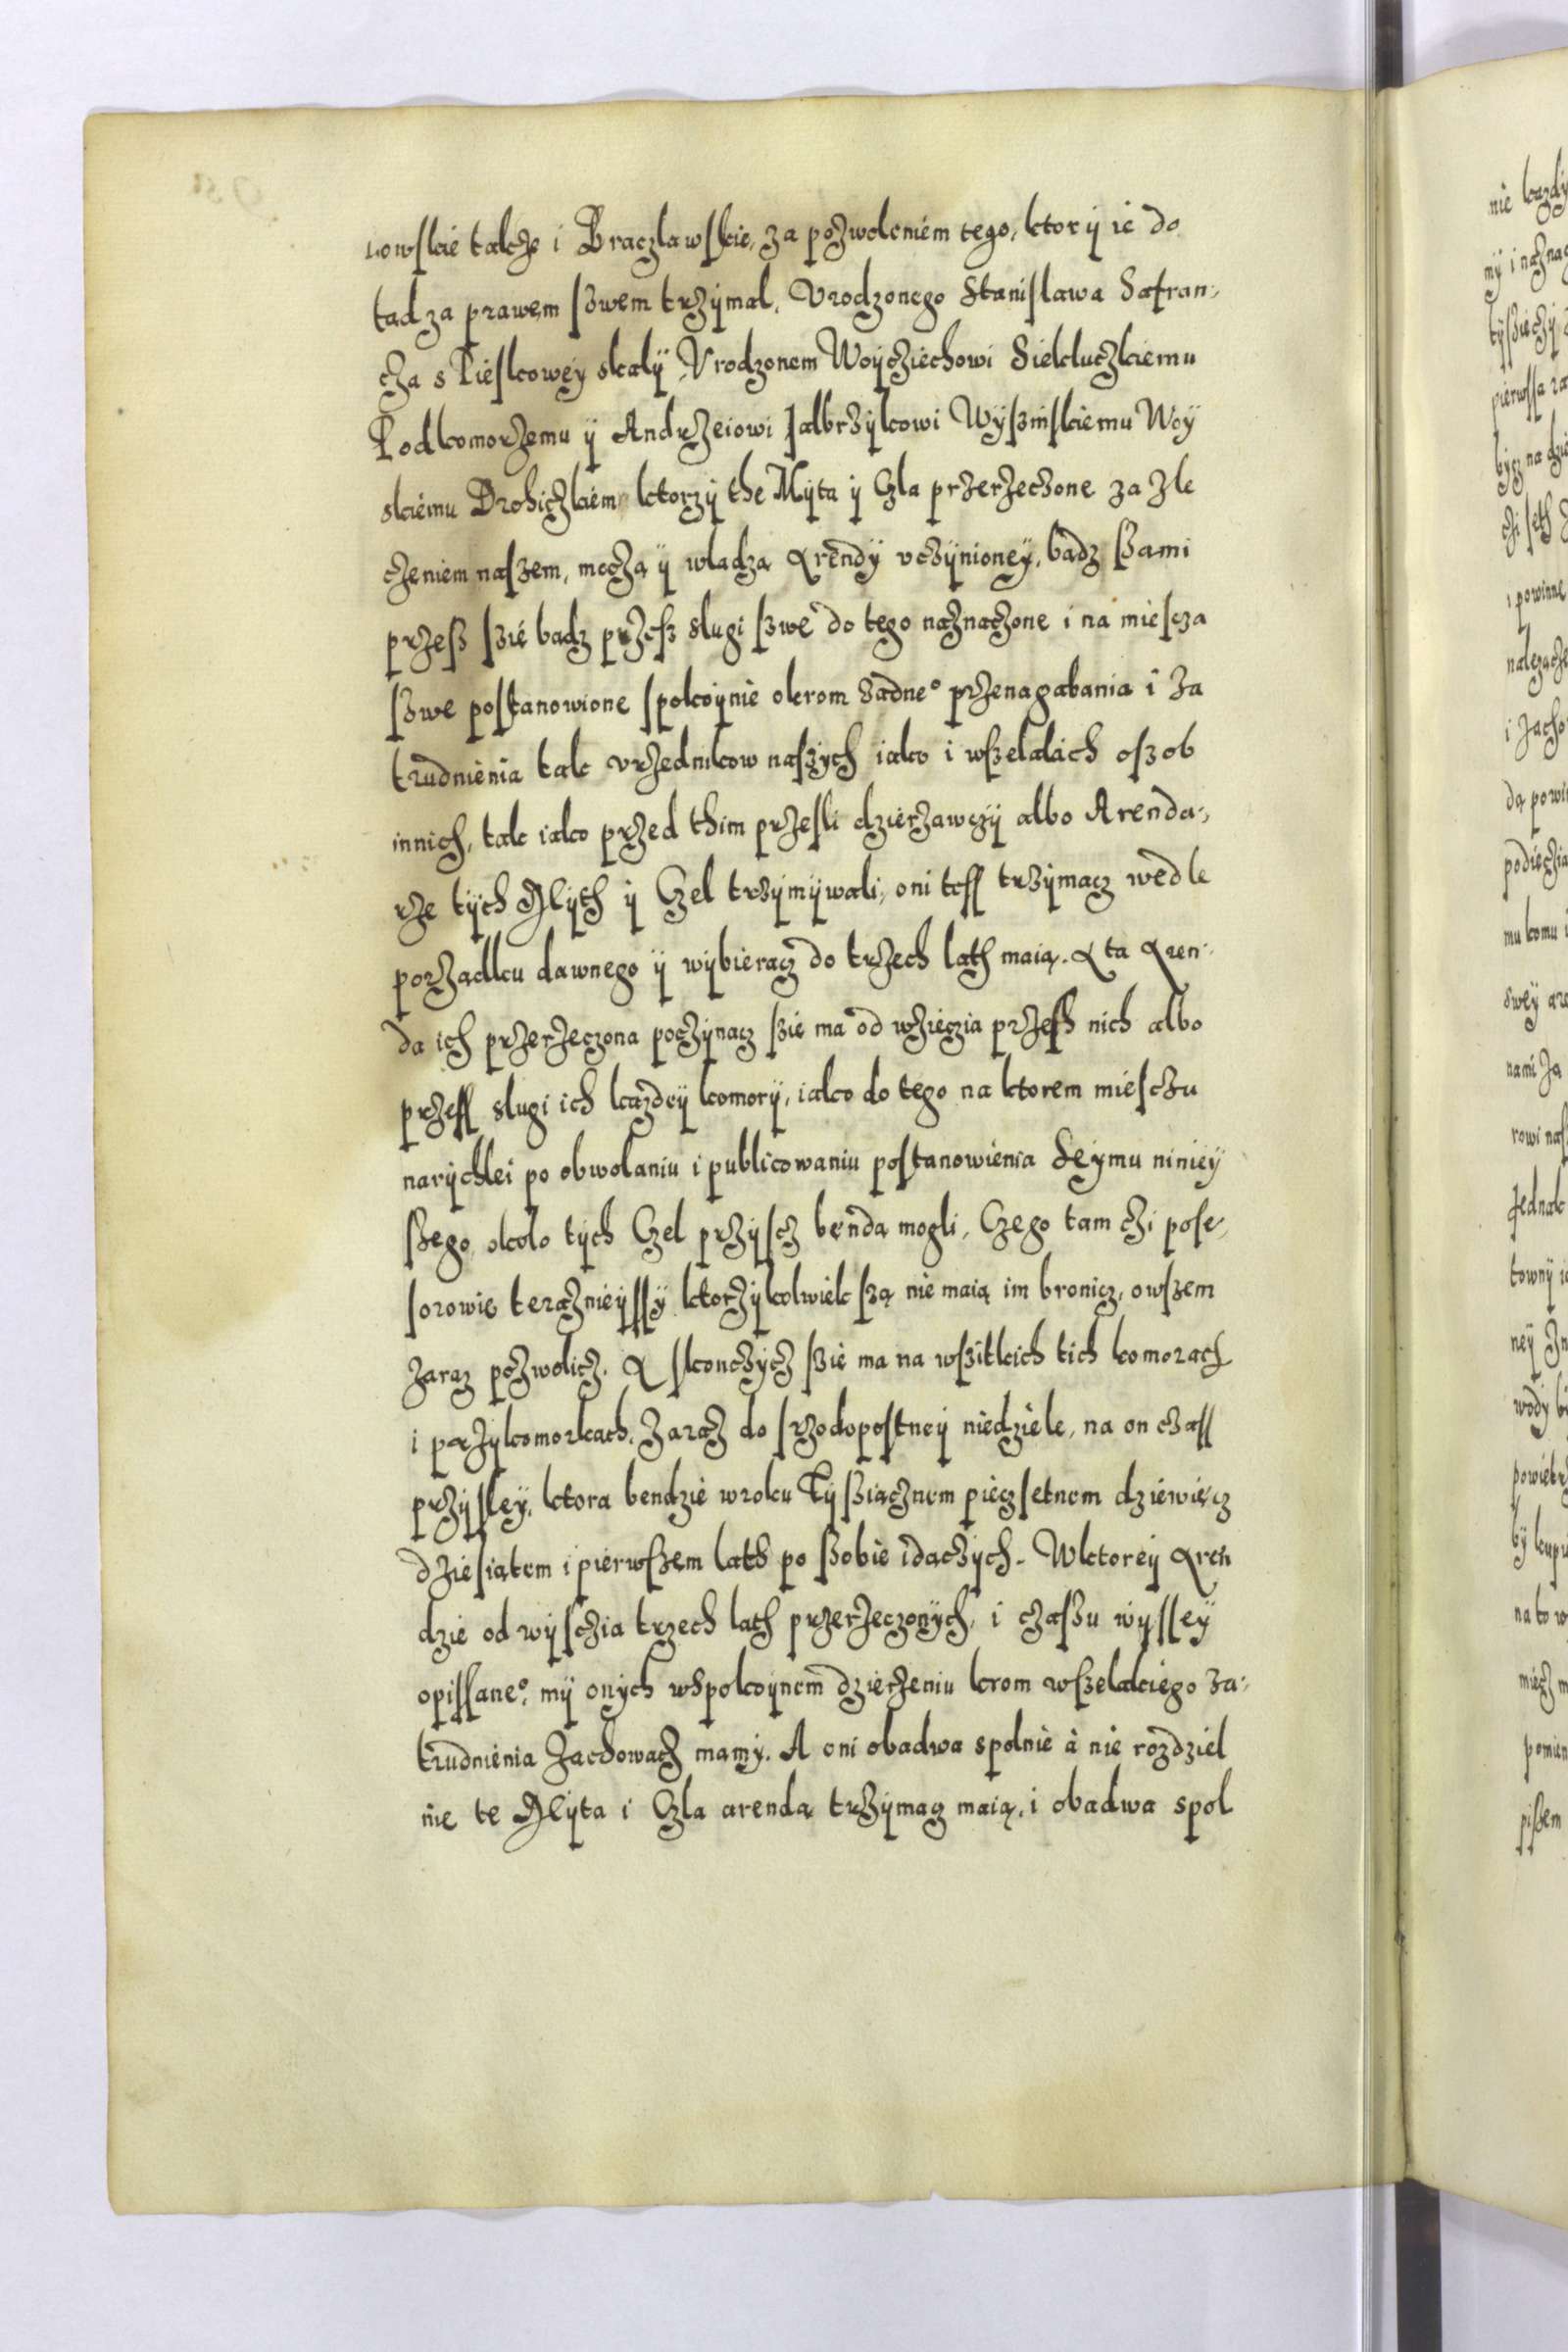 nowskie takze i Braczlawskie, za pozwoleniem tego, ktory ie do
tad za prawem szwem trzymal, Urodzonego Stanislawa Safran-
cza s Pieskowey skaly, Vrodzonem Woyciechowi Siekluczkiemu
Podkomorzemu y Andrzeiowi Jalbrzykowi Wyszinskiemu Woy
skiemu Drohiczkiem, ktorzy the Myta y Czla przerzeczone za zle
czeniem naszem, moczą y wladzą Arendy vczynioney, badz szami
przesz szie badz przesz slugi szwe do tego naznaczone i na miescza
szwe postanowione spokoynie okrom zadne° przenagabania i za
trudnienia tak vrzednikow naszych iako i wszelakich oszob
innich, tak iako przed thim przesli dzierzawczy albo Arenda-
rze tych Myth y Czel trzymywali, oni tess trzymacz wedle
porządku dawnego y wybieracz do trzech lath maią. A ta Aren-
da ich przerzeczona poczynacz szie ma od wzięczia przesh nich albo
przess slugi ich kazdey komory, iako do tego na ktorem miesczu
narychlei po obwolaniu i publicowaniu postanowienia Seymu niniey
szego, okolo tych Czel przyscz bęndą mogli, Czego tam czi pose-
sorowie teraznieyssy ktorzykolwiek szą nie maią im bronicz, owszem
zaraz pozwolicz. A skonczycz szie ma na wszitkich tich komorach
i przykomorkach, zaraz do srzodopostney niedziele, na on czass
przysley, ktora bendzie wroku Tysziącznem pięczsetnem dziewięcz
dziesiątem i pierwszem lath po szobie idaczych. Wktorey Aren
dzie od wysczia trzech lath przerzeczonych, i czaszu wyssey
opissane°, my onych wspokoynem dzierzeniu krom wszelakiego za-
trudnienia zachowacz mamy. A oni obadwa spolnie à nie rozdziel
nie te Myta i Czla arendą trzymacz maią, i obadwa spol